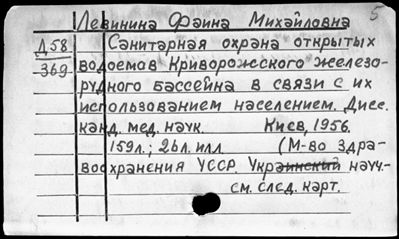 Левинина Фаина Михайловна 5
Д58 Санитарная охрана открытых
369 водоемов Криворожского железо-
рудного бассейна в связи с их
использованием населением. Дисс.
канд. мед. наук. Киев, 1956.
159л.; 26л. илл (М-во здра-
воохранения УССР. Украинский науч.-
см. след. карт.